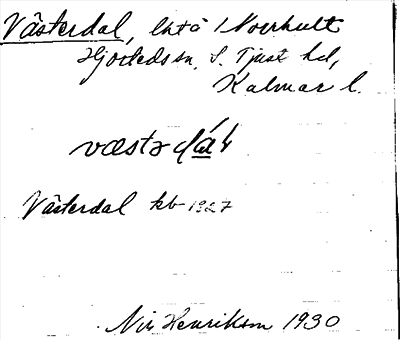 Västerdal, lht å Noerhult
Hjorteds sn, S. Tjust hd,
Kalmar l.
væstərdɑ́l
Västerdal kb 1927
Nii Henriksson 1930